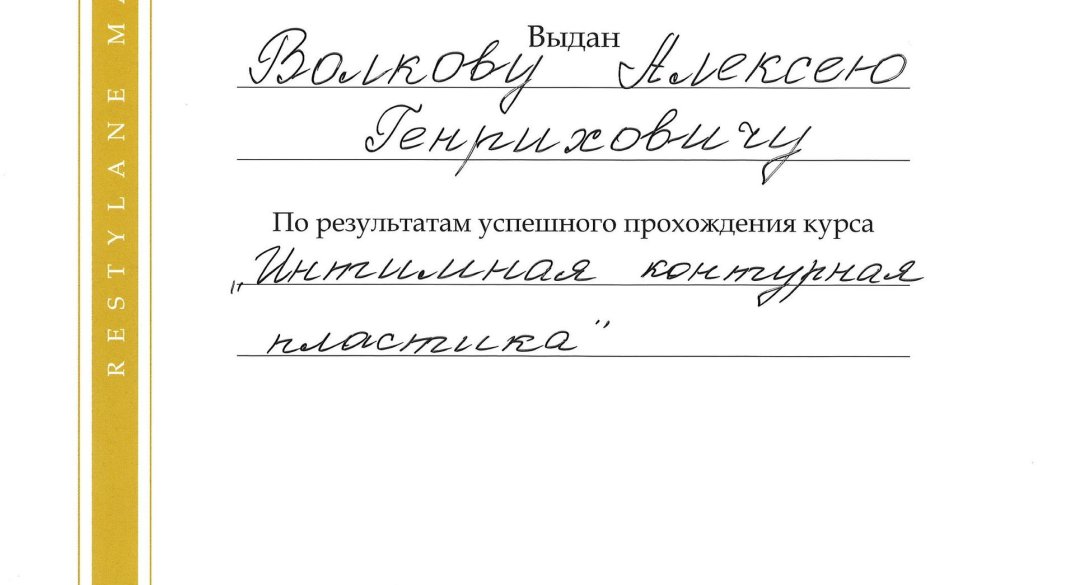 RESTYLANE
Выдан
Волкову Алексею
Генриховичу
По результатам успешного прохождения курса
„Интимная контурная
пластика"